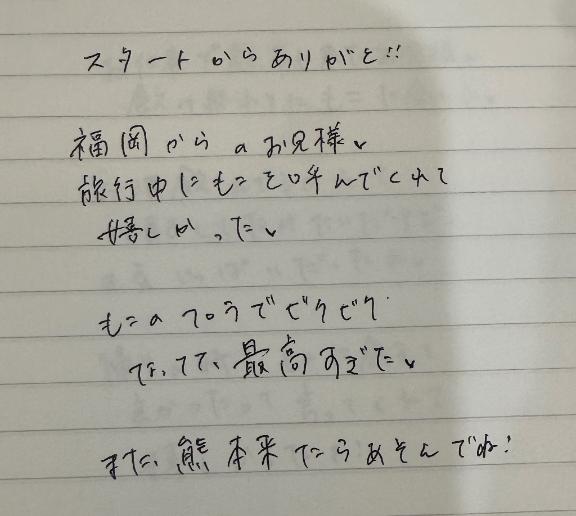 スタートからありがと!!
福岡からのお兄様、
旅行中にもこを呼んでくれて
嬉しかった、
もこのフロうでビクビク
なってて、最高すぎた、
また、熊本来たらあそんでね!